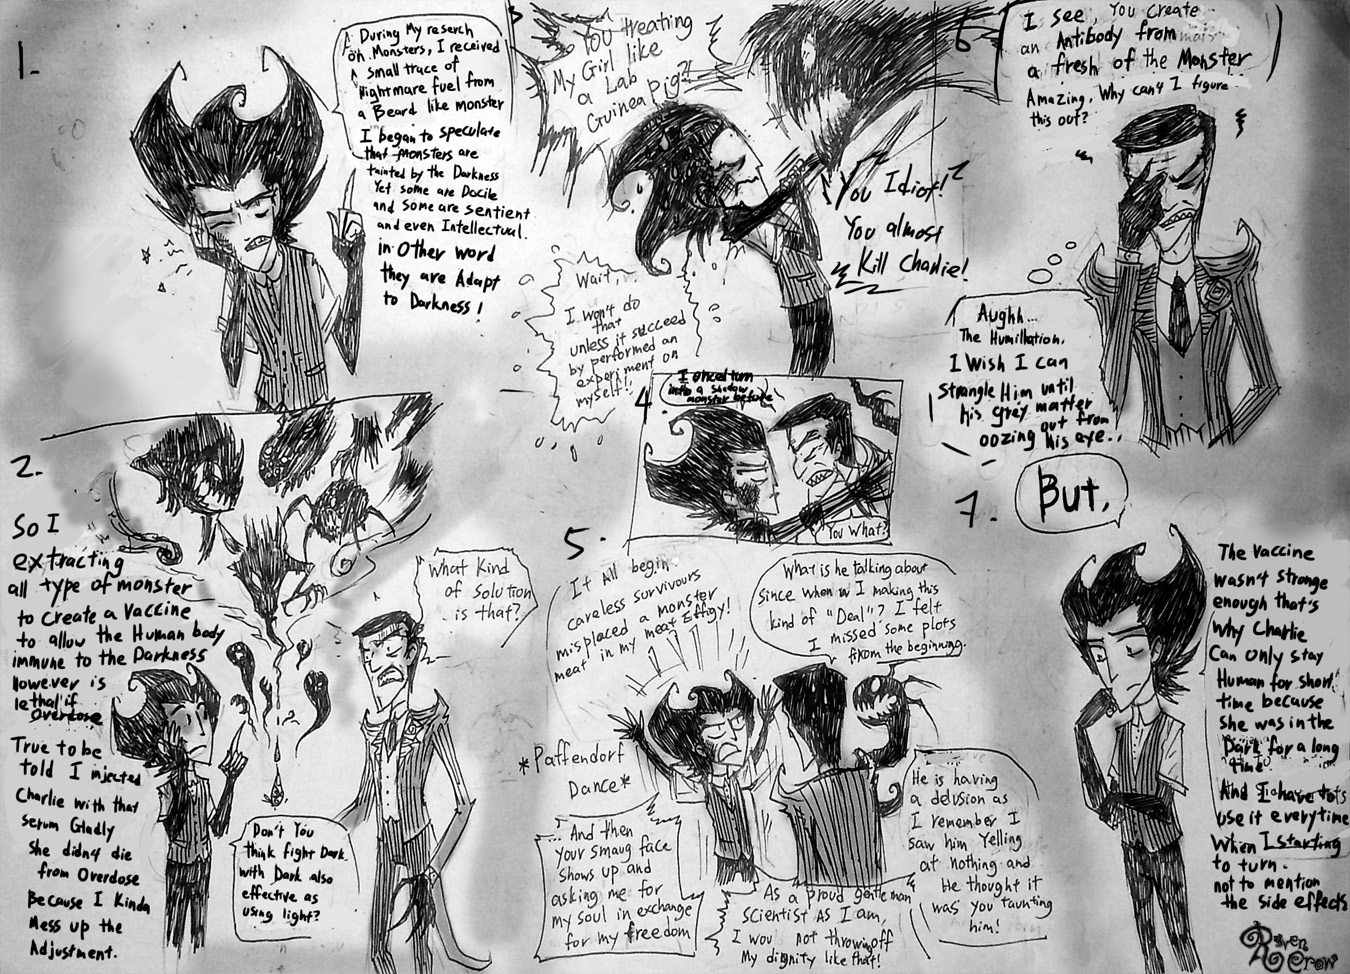 1.
During My reserch
on Monsters, I received
A small trace of
Nightmare fuel from
a Beard like monster
I began to speculate
that monsters are
tainted by the Darkness
Yet some are Docile
and some are sentient
and even Intellectual.
in Other word
they are Adapt
to Darkness!
2.
So I
extracting
all type of monster
to create a Vaccine
to allow the Human body
immune to the Darkness
However is
lethal if
Overdose
True to be
told I injected
Charlie with that
serum Gladly
she didn4 die
from Overdose
Because I Kinda
Mess up the
Adjustment.
What Kind
of solution
is that?
Don't You
think fight Dark
with Dark also
effective as
using light?
3
You treating
My Girl like
a Lab
Guinea pig?!
You Idiot!
You almost
Kill Charlie!
Wait,
I won't do
that
unless it succeed
by performed an
experiment on
myself!!
4.
I once turn
into a shadow
monster before
You What?
5.
It All begin
careless survivours
misplaced a monster
meat in my meat Effigy!
What is he talking about
Since when I making this
kind of "Deal"? I felt
I missed some plots
from the beginning.
*Paffendorf
Dance*
... And then
your smaug face
shows up and
asking me for
my soul in exchange
for my freedom
As a proud gentleman
scientist As I am,
I woul not throwing off
My dignity like that!
He is having
a delusion as
I remember I
saw him Yelling
at nothing and
He thought it
was you taunting
him!
6
I see, You create
an Antibody from
a fresh of the Monster
Amazing, Why can4 I figure
this out?
Aughh...
The Humillation.
I Wish I can
Strangle Him until
his grey matter
oozing out from
his eye..
7.
But,
The Vaccine
wasn4 strange
enough that's
Why Charlie
Can only stay
Human for short
time because
she was in the
Dark for a long
time
And I have tots
use it everytime
When I starting
to turn.
not to mention
the side effects
Reven
Crow